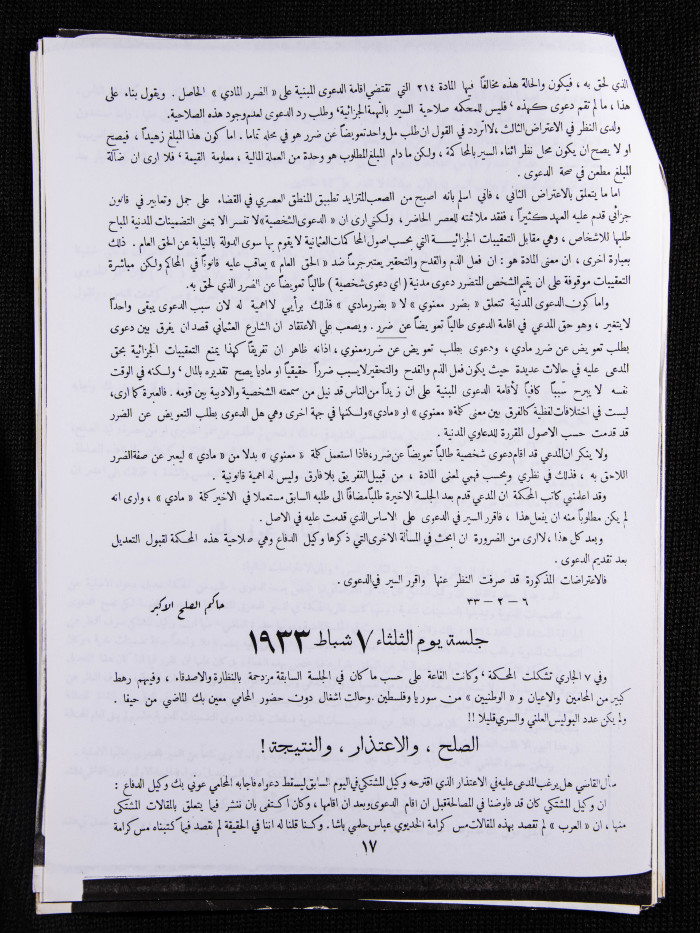 الذي لحق به ، فيكون والحالة هذه مخالفاً فيها المادة ٢١٤ التي تقتضي اقامة الدعوى المبنية على « الضرر المادي » الحاصل . ويقول بناء على
هذا ، ما لم تقم دعوى كهذه ، فليس للمحكمه صلاحية السير بالتهمة الجزائية ، وطلب رد الدعوى لعدم وجود هذه الصلاحية .
ولدى النظر في الاعتراض الثالث ، لا اتردد في القول ان طلب مل واحد تعويضاً عن ضرر هو في محله تماما . اما كون هذا المبلغ زهيداً ، فيصح
او لا يصح ان يكون محل نظر اثناء السير بالمحاكمة ، ولكن ما دام المبلغ المطلوب هو وحدة من العملة المالية ، معلومة القيمة ، فلا ارى ان ضآلة
المبلغ مطعن في صحة الدعوى .
اما ما يتعلق بالاعتراض الثاني ، فاني اسلم بانه اصبح من الصعب المتزايد تطبيق المنطق العصري في القضاء على جمل وتعابير في قانون
جزائي قدم عليه العهد كثيراً ، ففقد ملائمته للعصر الحاضر ، ولكني ارى ان « الدعوى الشخصية » لا تفسر الا بمعنى التضمينات المدنية المباح
طلبها للاشخاص ، وهي مقابل التعقيبات الجزائيــة التي بحسب اصول المحاكمات العثمانية لا يقوم بها سوى الدولة بالنيابة عن الحق العام . ذلك
بعبارة اخرى ، ان معنى المادة هو : ان فعل الذم والقدح والتحقير يعتبر جرماً ضد « الحق العام » يعاقب عليه قانوناً في المحاكم ولكن مباشرة
التعقيبات موقوفة على ان يقيم الشخص المتضرر دعوى مدنية ( اي دعوى شخصية ) طالباً تعويضاً عن الضرر الذي لحق به .
واما كون الدعوى المدنية تتعلق « بضرر معنوي » لا « بضرر مادي » فذلك برأيي لا اهمية له لان سبب الدعوى يبقى واحداً
لا يتغير ، وهو حق المدعي في اقامة الدعوى طالباً تعويضاً عن ضرر . ويصعب علي الاعتقاد ان الشارع العثماني قصد ان يفرق بين دعوى
بطلب تعويض عن ضرر مادي ، ودعوى بطلب تعويض عن ضرر معنوي ، اذ انه ظاهر ان تفريقاً كهذا يمنع التعقيبات الجزائية بحق
المدعى عليه في حالات عديدة حيث يكون فعل الذم والقدح والتحقير لا يسبب ضرراً حقيقياً او مادياً يصح تقديره بالمال ، ولكنه في الوقت
نفسه لا يبرح سبباً كافياً لأقامة الدعوى المبنية على ان زيداً من الناس قد نيل من سمعته الشخصية والادبية بين قومه . فالعبرة كما ارى ،
ليست في اختلافات لفظية كالفرق بين معنى كلمة « معنوي » او « مادي » ولكنها في جهة اخرى وهي هل الدعوى بطلب التعويض عن الضرر
قد قدمت حسب الاصول المقررة للدعاوي المدنية .
ولا ينكر ان المدعي قد اقام دعوى شخصية طالباً تعويضاً عن ضرر ، فاذا استعمل كلمة « معنوي » بدلا من « مادي » ليعبر عن صفة الضرر
اللاحق به ، فذلك في نظري وبحسب فهمي لمعنى المادة ، من قبيل التفريق بلا فارق وليس له اهمية قانونية .
وقد اعلمني كاتب المحكمة ان المدعي قدم بعد الجلسة الاخيرة طلباً مضافاً الى طلبه السابق مستعملا في الاخير كلمة « مادي » ، وارى انه
لم يكن مطلوباً منه ان يفعل هذا ، فاقرر السير في الدعوى على الاساس الذي قدمت عليه في الاصل .
وبعد كل هذا ، لا ارى من الضرورة ان ابحث في المسألة الاخرى التي ذكرها وكيل الدفاع وهي صلاحية هذه المحكمة لقبول التعديل
بعد تقديم الدعوى .
فالاعتراضات المذكورة قد صرفت النظر عنها واقرر السير في الدعوى .
٦ – ٢ – ٣٣ حاكم الصلح الاكبر
جلسة يوم الثلثاء ٧ شباط ١٩٣٣
وفي ٧ الجاري تشكلت المحكمة ، وكانت القاعة على حسب ما كان في الجلسة السابقة مزدحمة بالنظارة والاصدقاء ، وفيهم رهط
كبير من المحامين والاعيان و « الوطنيين » من سوريا وفلسطين . وحالت اشغال دون حضور المحامي معين بك الماضي من حيفا .
ولم يكن عدد البوليس العلني والسري قليلا !!
الصلح ، والاعتذار ، والنتيجة !
سأل القاضي هل يرغب المدعى عليه في الاعتذار الذي اقترحه وكيل المشتكي في اليوم السابق ليسقط دعواه فاجابه المحامي عوني بك وكيل الدفاع :
ان وكيل المشتكي كان قد فاوضنا في المصالحة قبل ان اقام الدعوى وبعد ان اقامها ، وكان أكتفى بان ننشر فيما يتعلق بالمقالات المشتكى
منها ، ان « العرب » لم تقصد بهذه المقالات مس كرامة الخديوي عباس حلمي باشا . وكنا قلنا له اننا في الحقيقة لم نقصد فيما كتبناه مس كرامة
١٧